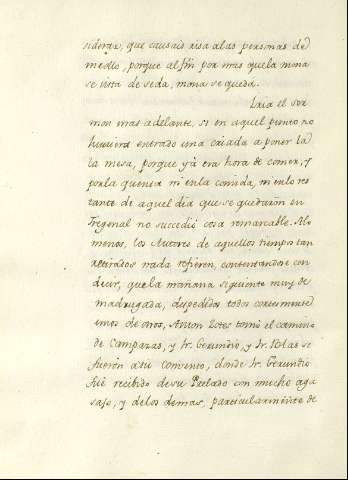 siderar, que causais risa alas personas de
medio, porque al fin por mas quela mona
se vista de seda, mona se queda.
Iria el ser
mon mas adelante, si en aquel punto no
huviera entrado una criada a poner la
la mesa, porque yà era hora de comer, y
porla quenta ni enla comida, ni enlo res
tante de aquel dia que se quedaron en
Fregenal no succedió cosa remarcable. Alo
menos, los Autores de aquellos tiempos tan
retirados nada refieren, contentandose con
decir, quela mañana siguiente muy de
madrugada, despedidos todos cortesmente
unos de otros, Anton Zotes tomò el camino
de Campazas, y Fr. Gerundio, y Fr. Blas se
fueron asu convento, donde Fr. Gerundio
fuè recibido desu Prelado con mucho aga
sajo, y delos demas, particularmente de